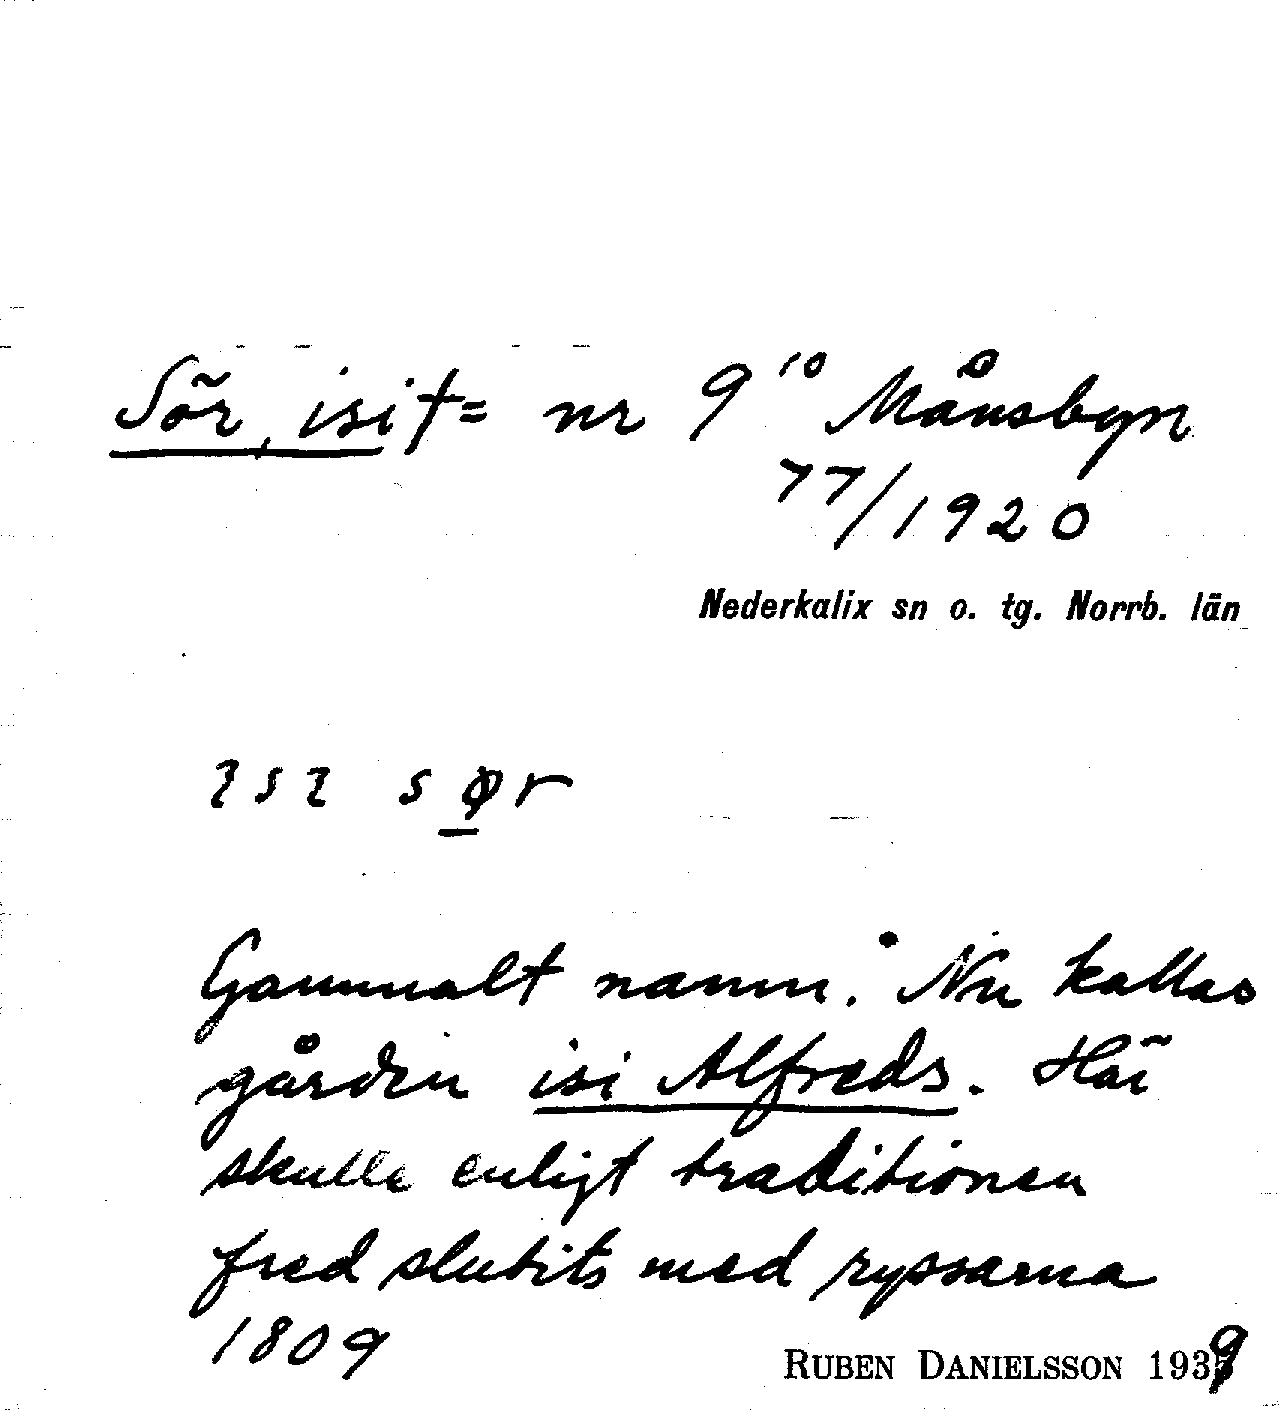 Sör, isi † = nr 9¹⁰ Månsbyn
77/1920
Nederkalix sn o. tg. Norrb. län
ɩsɩ sør
Gammalt namn. Nu kallas
gården isi Alfreds. Här
skulle enligt traditionen
fred slutits med ryssarna
1809
RUBEN DANIELSSON 1939